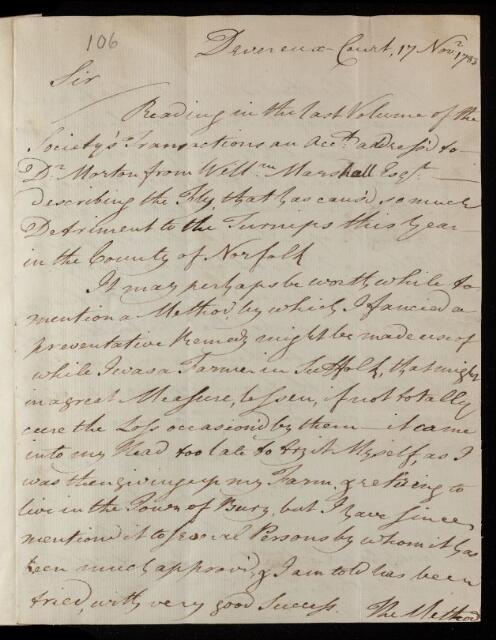 106
Devereux Court, 17 Novr. 1783
Sir
Reading in the last Volume of the
Society's Transactions an Acct. address'd to
Dr. Morton from Willm. Marshall Esqr.
describing the Fly that has caus'd, so much
Detriment to the Turneps this Year
in the County of Norfolk
It may perhaps be worth while to
mention a Method, by which I fancied a
preventative Remedy might be made use of
while I was a Farmer in Suffolk, that might
in a great Measure, lessen, if not totally
cure the Loss occasiond by them - it came
into my Head too late to try it Myself, as I
was then giving up my Farm, & retiring to
live in the Town of Bury, but I have since
mentiond it to several Persons by whom it has
been much approv'd, & I am told has been
tried, with very good Success. The Method